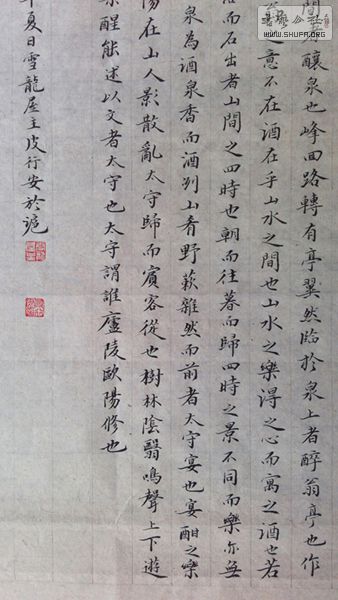 間者釀泉也峰回路轉有亭翼然臨於泉上者醉翁亭也作
之意不在酒在乎山水之間也山水之樂得之心而寓之酒也若
而石出者山間之四時也朝而往暮而歸四時之景不同而樂亦無
泉為酒泉香而酒冽山肴野蔌雜然而前者太守宴也宴酣之樂
陽在山人影散亂太守歸而賓客從也樹林陰翳鳴聲上下遊
樂醒能述以文者太守也太守謂誰廬陵歐陽修也
年夏日雪龍屋主皮行安於滬
WWW.SHUFA.ORG